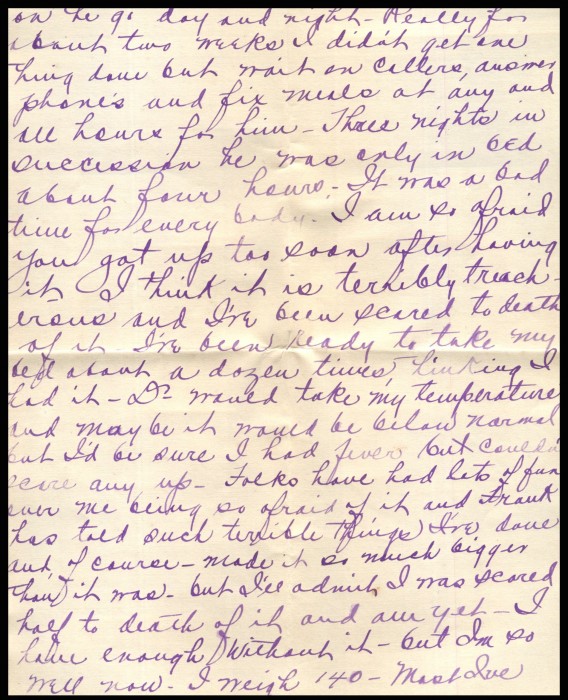 on the go day and night - Really for
about two weeks I didn't get one
thing done but wait on callers, answer
phones and fix meals at any and
all hours for him - Three nights in
succession he was only in bed
about four hours. - It was a bad
time for every body. I am so afraid
you got up too soon after having
it I think it is terribly treach-
erous and I've been scared to death
of it I've been ready to take my
bed about a dozen times, thinking I
had it - Dr. would take my temperature
and may be it would be below normal
but I'd be sure I had fever but couldn't
scare any up - Folks have had lots of fun
over me being so afraid of it and Frank
has told such terrible things I've done
and, of course - made it so much bigger
than it was - but I'll admit I was scared
half to death of it and am yet - I
have enough without it - but I'm so
well now - I weigh 140 - Most I've